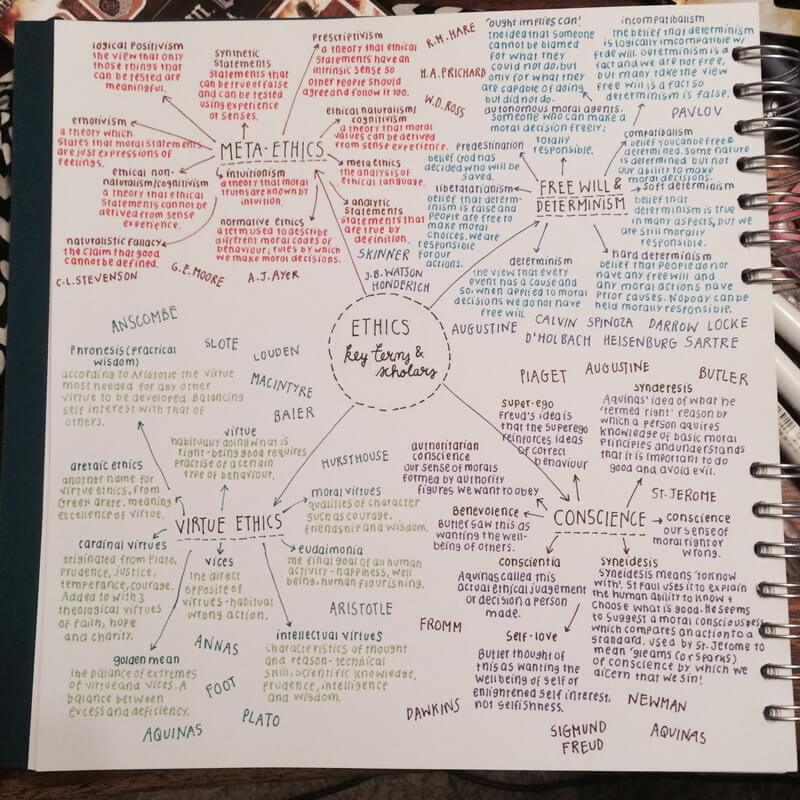 ETHICS
key terms &
scholars
META-ETHICS
logical Positivism
the view that only
those things that
can be tested are
meaningful.
synthetic
Statements
Statements that
can be true or false
and can be tested
using experience
or senses.
Prescriptivism
a theory that ethical
Statements have an
intrinsic sense so
other people should
agree and follow it too.
emotivism
a theory which
states that moral statements
are just expressions of
feelings.
ethical naturalism/
cognitivism
a theory that moral
values can be derived
from sense experience.
ethical non-
naturalism/cognitivism
a theory that ethical
Statements cannot be
derived from sense
experience.
intuitionism
a theory that moral
truths are known by
intuition.
meta ethics
the analysis of
ethical language.
analytic
Statements
statements that
are true by
definition.
normative ethics
a term used to describe
different moral codes of
behaviour; rules by which
we make moral decisions.
naturalistic fallacy
the claim that good
cannot be defined.
C.L. STEVENSON
G.E. MOORE
A.J. AYER
R.M. HARE
H.A. PRICHARD
W.D. ROSS
FREE WILL &
DETERMINISM
'ought implies can'
the idea that someone
cannot be blamed
for what they
could not do, but
only for what they
are capable of doing
but did not do.
incompatibalism
the belief that determinism
is logically incompatible w/
free will. Determinism is a
fact and we are not free,
but many take the view
free will is a fact so
determinism is false.
autonomous moral agents.
Someone who can make a
moral decision freely;
totally
responsible.
PAVLOV
Predestination
belief God has
decided who will be
saved.
compatibalism
belief you can be free &
determined. Some nature
is determined but not
our ability to make
moral decisions.
libertatarianism
belief that determin-
ism is false and
people are free to
make moral
choices, we are
responsible
for our
actions.
Soft determinism
belief that
determinism is true
in many aspects, but we
are still morally
responsible.
determinism
the view that every
event has a cause and
so, when applied to moral
decisions we do not have
free will.
hard determinism
belief that people do not
have any free will and
any moral actions have
prior causes. Nobody can be
held morally responsible.
SKINNER
J.B. WATSON
HONDERICH
AUGUSTINE
CALVIN
SPINOZA
DARROW
LOCKE
D'HOLBACH
HEISENBURG
SARTRE
VIRTUE ETHICS
ANSCOMBE
SLOTE
LOUDEN
MACINTYRE
BAIER
HURSTHOUSE
Phronesis (practical
wisdom)
according to Aristotle the virtue
most needed for any other
virtue to be developed. Balancing
self interest with that of
others.
virtue
habitually doing what is
right-being good requires
practise of a certain
type of behaviour.
aretaic ethics
another name for
virtue ethics, from
Greek arete, meaning
excellence of virtue.
moral virtues
qualities of character
such as courage,
friendship and wisdom.
cardinal virtues
originated from Plato,
prudence, justice,
temperance, courage.
Added to with 3
theological virtues
of faith, hope
and charity.
vices
the direct
opposite of
virtues-habitual
wrong action.
eudaimonia
the final goal of an human
activity - happiness, well
being, human flourishing.
ARISTOTLE
intellectual virtues
Characteristics of thought
and reason- technical
skill, scientific knowledge,
prudence, intelligence
and wisdom.
golden mean
the balance of extremes
of virtue and vices. A
balance between
excess and deficiency.
ANNAS
FOOT
PLATO
AQUINAS
CONSCIENCE
PIAGET
AUGUSTINE
BUTLER
super-ego
Freud's idea is
that the superego
reinforces ideas
of correct
behaviour
synderesis
Aquinas' idea of what he
'termed right' reason by
which a person aquires
knowledge of basic moral
principles and understands
that it is important to do
good and avoid evil.
authoritarian
conscience
our sense of morals
formed by authority
figures we want to obey
ST. JEROME
Benevolence
Butler saw this as
wanting the well-
being of others.
conscience
our sense of
moral right or
wrong.
conscientia
Aquinas called this
actual ethical judgement
or decision a person
made.
syneidesis
Syneidesis means 'to know
with'. St Paul uses it to explain
the human ability to know +
choose what is good. He seems
to suggest a moral consciousness
which compares an action to a
standard. used by St. Jerome to
mean 'gleams (or sparks)
of conscience by which we
dicern that we sin!
FROMM
Self-love
Butler thought of
this as wanting the
wellbeing of self or
enlightened self interest,
not selfishness.
DAWKINS
SIGMUND
FREUD
NEWMAN
AQUINAS